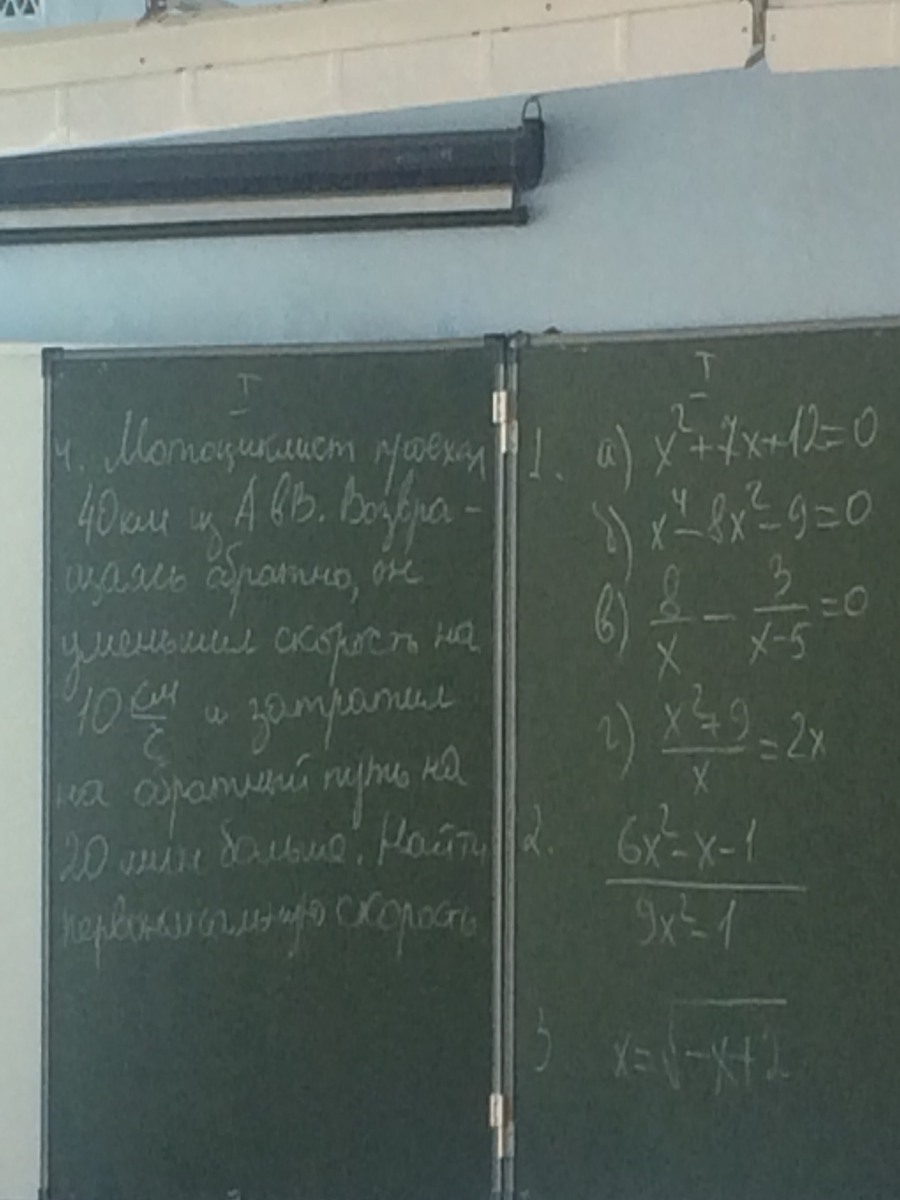 I
4. Мотоциклист проехал
40 км из А в В. Возвра-
щаясь обратно, он
уменьшил скорость на
10 км/ч и затратил
на обратный путь на
20 мин больше. Найти
первоначальную скорость
I
1. а) x²+7x+12=0
б) x⁴-8x²-9=0
в) 8/x - 3/(x-5) =0
г) (x²+9)/x =2x
2. (6x²-x-1)/(9x²-1)
3 x=√(-x+2)